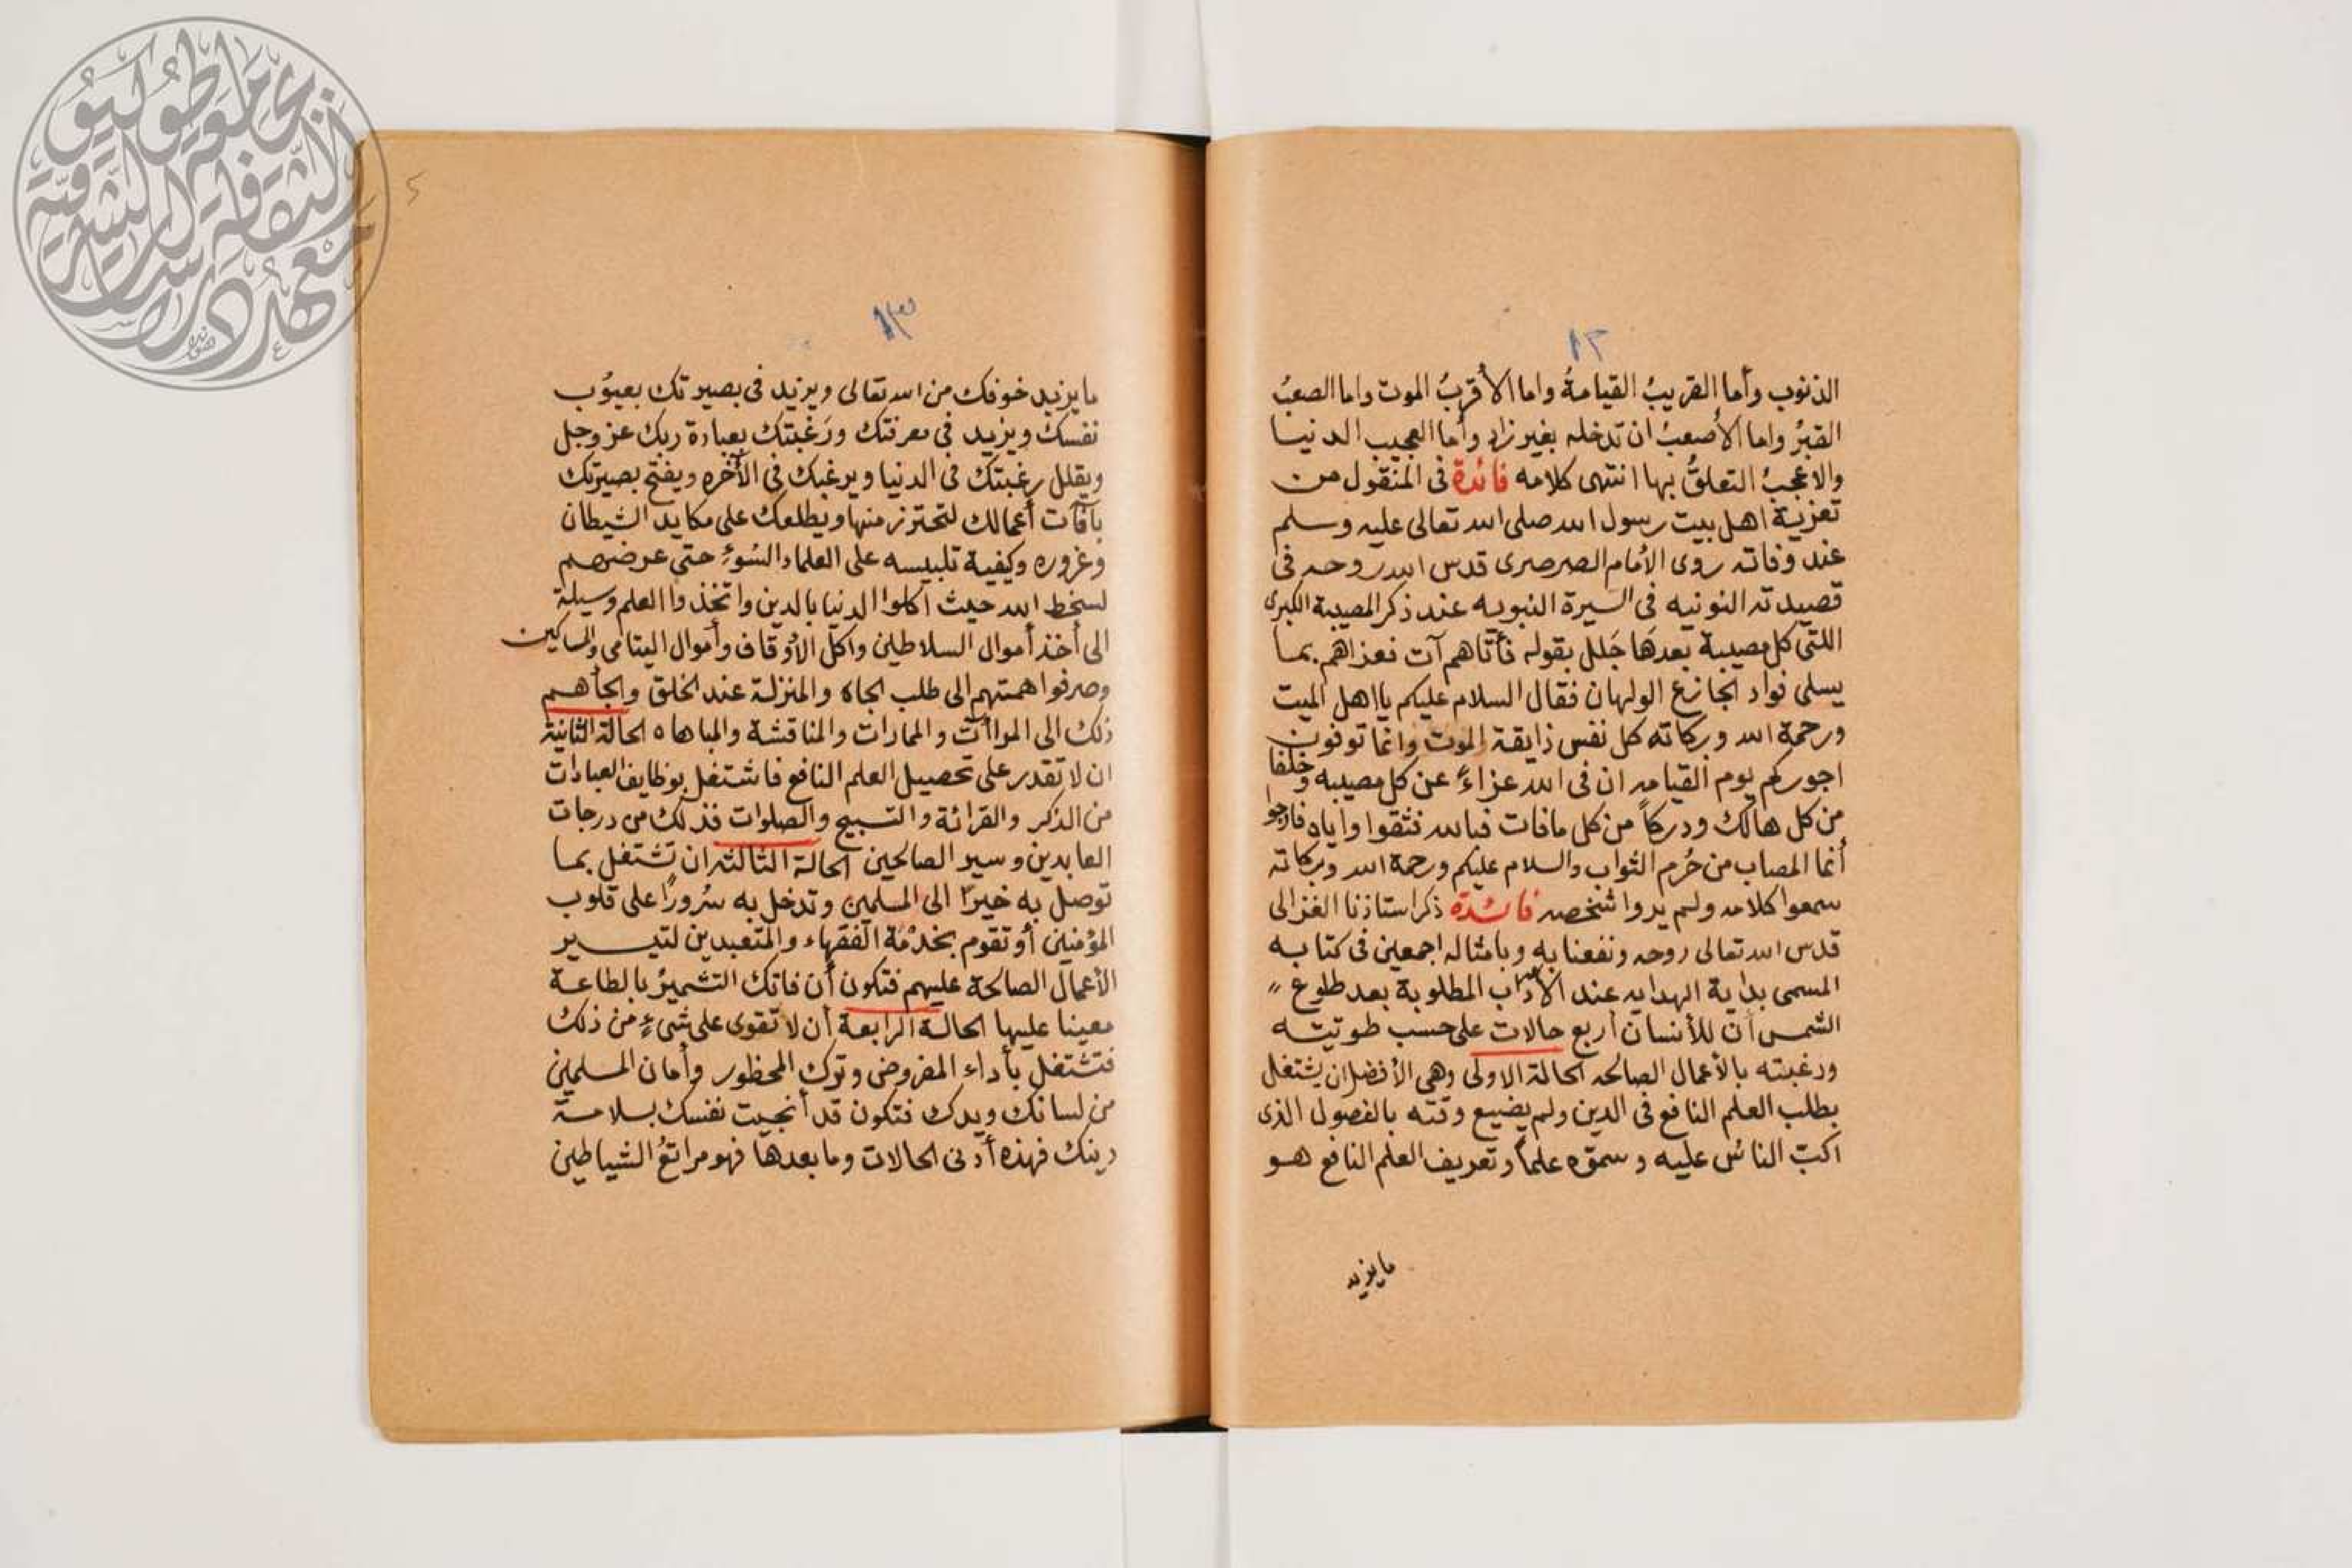 ١٢
الذنوب وأما القريبُ القيامةُ واما الأقربُ الموت واما الصعبُ
القبرُ واما الأصعبُ ان تدخله بغير زاد وأما العجيب الدنيا
والاعجبُ التعلقُ بها انتهى كلامه فائدة فى المنقول من
تعزية اهل بيت رسول الله صلى الله تعالى عليه وسلم
عند وفاته روى الأمام الصرصرى قدس الله روحه فى
قصيدته النونيه فى السيرة النبويه عند ذكر المصيبة الكبرى
اللتى كل مصيبة بعدَها جَلل بقوله فأتاهم آت فعزاهم بما
يسلى فواد الجازع الولهان فقال السلام عليكم يا اهل الميت
ورحمة الله وبركاته كل نفس ذايقة الموت وانما توفون
اجوركم يوم القيامه ان فى الله عزاءً عن كل مصيبه وخلفا
من كل هالك ودركاً من كل مافات فبالله فثقوا واياه فارجوا
أنما المصاب من حُرم الثواب والسلام عليكم ورحمة الله وبركاته
سمعوا كلامه ولم يروا شخصه فائدة ذكر استاذنا الغزالى
قدس الله تعالى روحه ونفعنا به وبامثاله اجمعين فى كتابه
المسمى بداية الهدايه عند الأداب المطلوبة بعد طلوع
الشمس أن للأنسان أربع حالات على حسب طويته
ورغبته بالأعمال الصالحه الحالة الاولى وهى الأفضل ان يشتغل
بطلب العلم النافع فى الدين ولم يضيع وقته بالفصول الذى
اكبّ الناسُ عليه وسموّه علماً وتعريف العلم النافع هو
ما يزيد
١٣
ما يزيد خوفك من الله تعالى ويزيد فى بصيرتك بعيُوب
نفسك ويزيد فى معرفتك ورَغبتك بعبادة ربك عز وجل
ويقلل رغبتك فى الدنيا ويرغبك فى الأخره ويفتح بصيرتك
بأفآت أعمالك لتحترز منها ويطلعك على مكايد الشيطان
وغروره وكيفية تلبيسه على العلماء السُوءِ حتى عرضهم
لسخط الله حيث اكلوا الدنيا بالدين واتخذوا العلم وسيلة
الى أخذ أموال السلاطين واكل الأوقاف وأموال اليتامى والمساكين
وصرفوا همتهم الى طلب الجاه والمنزلة عند الخلق والجأهم
ذلك الى المراأت والممارات والمناقشة والمباهاه الحالة الثانية
ان لا تقدر على تحصيل العلم النافع فاشتغل بوظايف العبادات
من الذكر والقرائة والتسبيح والصلوات فذلك من درجات
العابدين وسير الصالحين الحالة الثالثه ان تشتغل بما
توصل به خيرًا الى المسلمين وتدخل به سُرورًا على قلوب
المؤمنين أو تقوم بخدمة الفقهاء والمتعبدين لتيسير
الأعمال الصالحة عليهم فتكون أن فاتك التشميرُ بالطاعة
معينا عليها الحالة الرابعة أن لا تقوى على شىءٍ من ذلك
فتشتغل بأداء المفروض وترك المحظور وأمان المسلمين
من لسانك ويدك فتكون قد أنجيت نفسك بسلامة
دينك فهذه أدنى الحالات وما بعدها فهو مراتعُ الشياطين